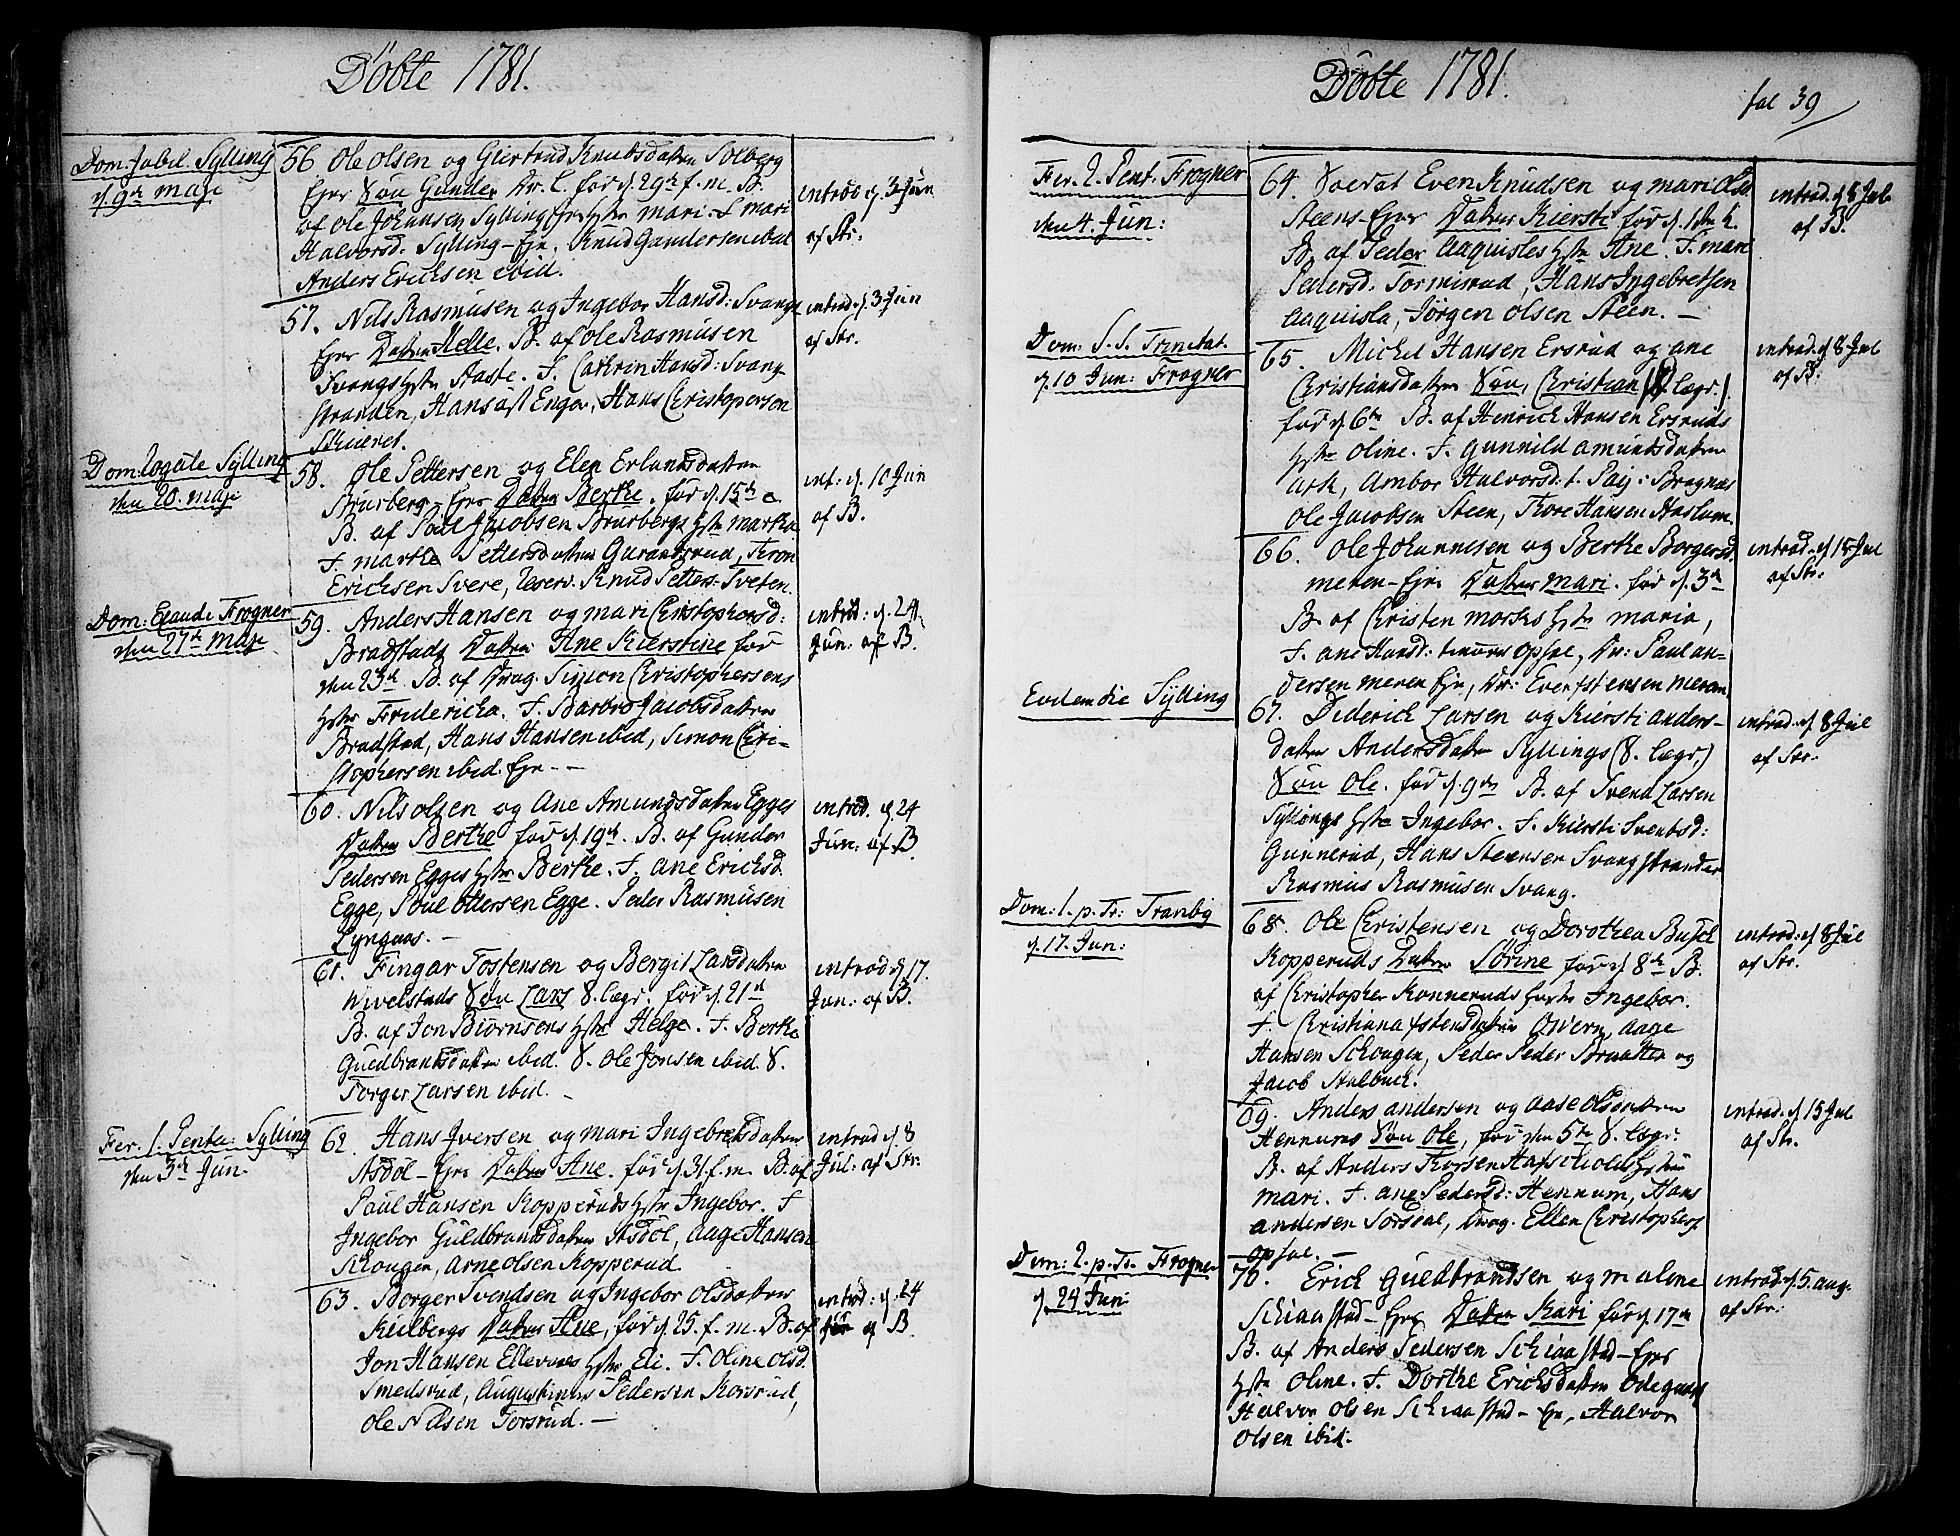 Döbte 1781.
Dom: Jubil. Sylling
d. 9de Maji
56 Ole Olsen og Giertrud Knudsdatter Solberg
Ejer Søn Gunder Dr. l. før d. 29de f. m. B.
af Ole Johansen Sylling Ejer hstr Mari. F. Mari
Halvorsd. Sylling-Eje. Knud Gundersen ibid
Anders Ericksen ibid.
introd d. 3 Jun
af Str.
57. Nils Rasmusen og Ingebor Hansd: Svangs
Ejer Datter Helle. B. af Ole Rasmusen
Svangs hstr Aaste. F. Cathrin Hansd: Svang
stranden, Hans Enger, Hans Christopersen
introd. d. 3 Jun
af Str.
Dom: Rogate Sylling
den 20. Maji
58. Ole Pettersen og Elen Erlandsdatter
Brurberg-Ejer Datter Berthe. før d. 15de
B. af Poul Jacobsen Brurbergs hstr Marthe
F. Marthe Pettersdatter Gurandsrud, Tron
Ericksen Svere, reserv. Knud Petters: Sveten.
int: d. 10 Jun
af B.
Dom: Exaudi Frogner
den 27de Maji
59. Anders Hansen og Mari Christophersd:
Bradstads Datter Ane Kierstine før
den 23de B. af Drag. Simon Christophersens
hstr Fridericha. F. Barbro Jacobsdatter
Bradstad, Hans Hansen ibid, Simon Chri-
stophersen ibid. Eje--
introd. d. 24
Jun: af B.
60. Nils Olsen og Ane Amundsdatter Egges
Datter Berthe før d. 19de. B. af Gunder
Pedersen Egges hstr Berthe. F. Ane Ericksd.
Egge, Poul Ottersen Egge. Peder Rasmusen
Lyngaas.-
introd. d. 24
Jun: af B.
61. Fingar Tostensen og Bergit Larsdatter
Hvivelstads Søn Lars 8. lægr. før d. 21de
B. af Jon Biørnsens hstr Helge. F. Berthe
Guldbrandsdatter ibid. 8. Ole Jonsen ibid. 8.
Torger Larsen ibid.-
introd d. 17.
Jun: af B.
Fer. 1. Pentec: Sylling
den 3de Jun.
62. Hans Iversen og Mari Ingebretsdatter
Asdøl-Ejer Datter Ane. før d. 31. f. m. B. af
Paul Hansen Kopperuds hstr Ingebor. F
Ingebor Guldbrandsdatter Asdøl, Aage Hansen
Skougen, Arne Olsen Kopperud.
introd d. 8
Jul: af Str:
63. Borger Svendsen og Ingebor Olsdatter
Kielbergs Datter Ane, før d. 25. f. m. B. af
Jon Hansen Ellevnes hstr Eli. F. Oline Olsd.
Smedsrud, Augustinus Pedersen Korsrud,
Ole Nilsen Torsrud.-
introd: d. 24
Jun af B.
Döbte 1781.
fol 39
Fer. 2. Pent. Frogner
den 4. Jun:
64. Soldat Even Knudsen og Mari Olsd
Steens-Ejer Datter Kiersti før d. 1ste h.
B. af Peder Aaquisles hstr Ane. F. Mari
Pedersd. Tormisrud, Hans Ingebretsen
Aaquisla, Jørgen Olsen Steen.-
introd. d. 8 Jul.
af B.
Dom: S. S. Trinitat.
d. 10 Jun: Frogner
65. Michel Hansen Ersrud og Ane
Christiansdatter Søn, Christian (8 lægr.)
før d. 6te B. af Henrich Hansen Ersruds
hstr Oline. F. Gunnild Amundsdatter
Ark, Ambor Halvorsd: t. Paj: Bragnæs
Ole Jacobsen Steen, Tore Hansen Haslum.
introd. d. 8 Jul
af B.
66. Ole Johannesen og Berthe Borgersd.
Meren-Ejer Datter Mari. før d. 3de
B. af Christen Morks hstr Maria,
F. Ane Hansd: Opsal, Dr: Paul An-
dersen Meren Eje, Dr: Even Stensen Meren
introd. d. 15 Jul
af Str.
Eodem die Sylling
67. Diderick Larsen og Kiersti Anders-
datter Andersdatter Syllings (8. lægr.)
Søn Ole. før d. 9de B. af Svend Larsen
Syllings hstr Ingebor. F. Kiersti Svendsd:
Gunnerud, Hans Steensen Svangstranden
Rasmus Rasmusen Svang.
introd. d. 8 Jul
af Str.
Dom: 1. p. Tr: Tranby
d. 17. Jun:
68. Ole Christensen og Dorothea Busch
Kopperuds Datter Sörine før d. 8de B.
af Christopher Konneruds hustr Ingebor.
F. Christiana Ostensdatter Overn, Aage
Hansen Schougen, Peder Peder Braatten og
Jacob Stalbuck.
introd: d. 8 Jul
af Str.
69. Anders Andersen og Aase Olsdatter
Hennums Søn Ole, før den 5te 8. lægr:
B. af Anders Torsen Hapscholds hstru
Mari. F. Ane Pedersd: Hennum, Hans
Andersen Sørsdal, Drag. Ellen Christophers
Opsal.-
introd. d. 15 Jul
af Str.
Dom: 2. p. Tr. Frogner
d. 24 Jun:
70. Erick Guldbrandsen og Malene
Schiaastad-Ejer Datter Kari før d. 17de
B. af Anders Pedersen Schiaastad-Ejer
hstr Oline. F. Dorthe Ericksdatter Odegaard
Halvor Olsen Schiaastad-Eje, Halvor
Olsen ibid.
introd. d. 5. Aug.
af Str: